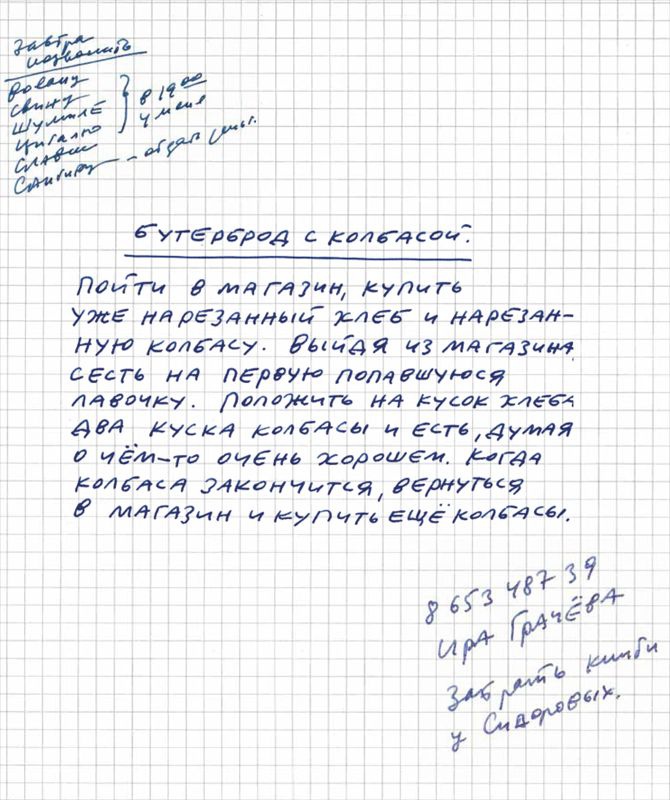 Завтра
позвонить
Вовану
Свину
Шумиле
Цигалю
Славе
} в 19⁰⁰
у меня
– отдать
БУТЕРБРОД С КОЛБАСОЙ.
ПОЙТИ В МАГАЗИН, КУПИТЬ
УЖЕ НАРЕЗАННЫЙ ХЛЕБ И НАРЕЗАН-
НУЮ КОЛБАСУ. ВЫЙДЯ ИЗ МАГАЗИНА
СЕСТЬ НА ПЕРВУЮ ПОПАВШУЮСЯ
ЛАВОЧКУ. ПОЛОЖИТЬ НА КУСОК ХЛЕБА
ДВА КУСКА КОЛБАСЫ И ЕСТЬ, ДУМАЯ
О ЧЁМ-ТО ОЧЕНЬ ХОРОШЕМ. КОГДА
КОЛБАСА ЗАКОНЧИТСЯ, ВЕРНУТЬСЯ
В МАГАЗИН И КУПИТЬ ЕЩЁ КОЛБАСЫ.
8 653 487 39
Ира Грачёва
Забрать
у Сидоровых.